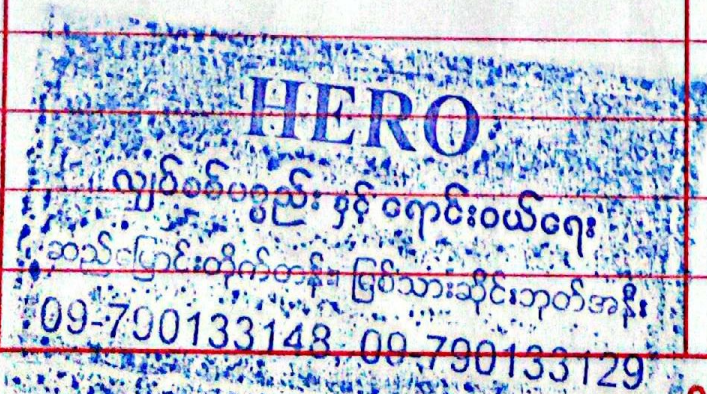 HERO
လျှပ်စစ်ပစ္စည်း နှင့် ရောင်းဝယ်ရေး
ဆည်မြောင်းတိုက်တန်း၊ မြစ်သားဆိုင်းဘုတ်အနီး
09-790133148, 09-790133129